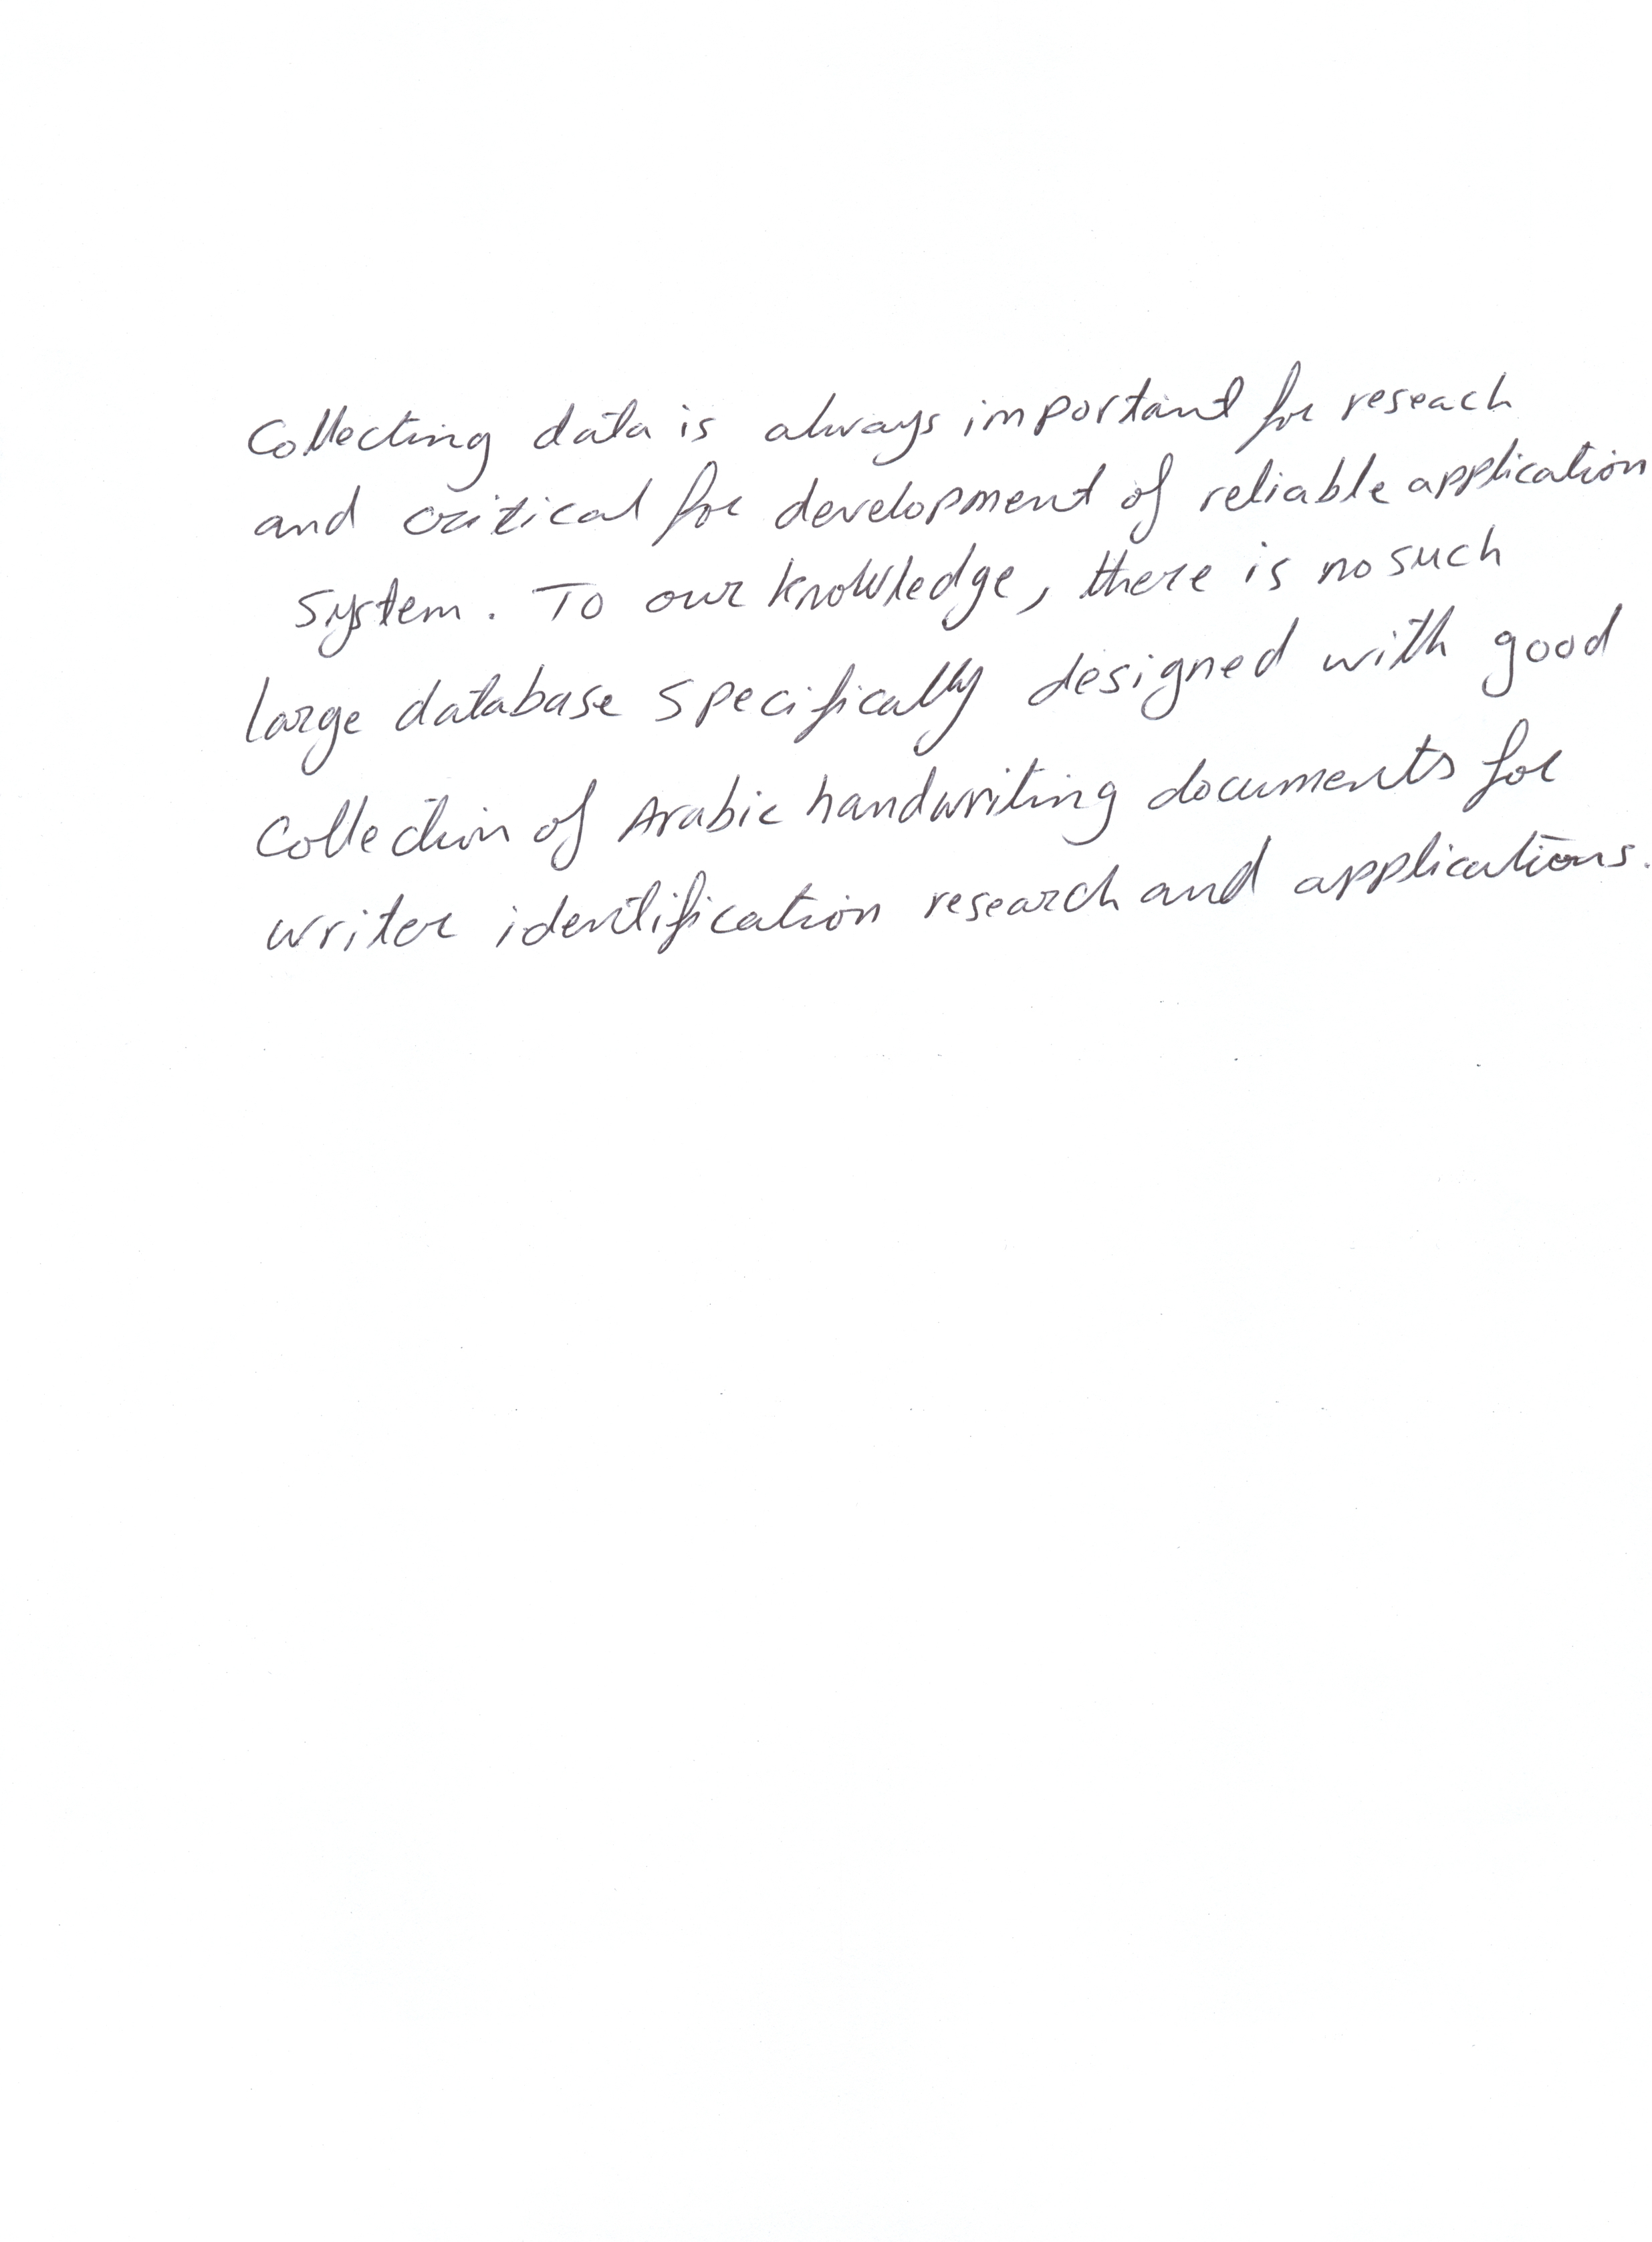 Collecting data is always important for reseach
and critical for development of reliable application
system. To our knowledge, there is no such
large database specifically designed with good
collection of Arabic handwriting documents for
writer identification research and applications.